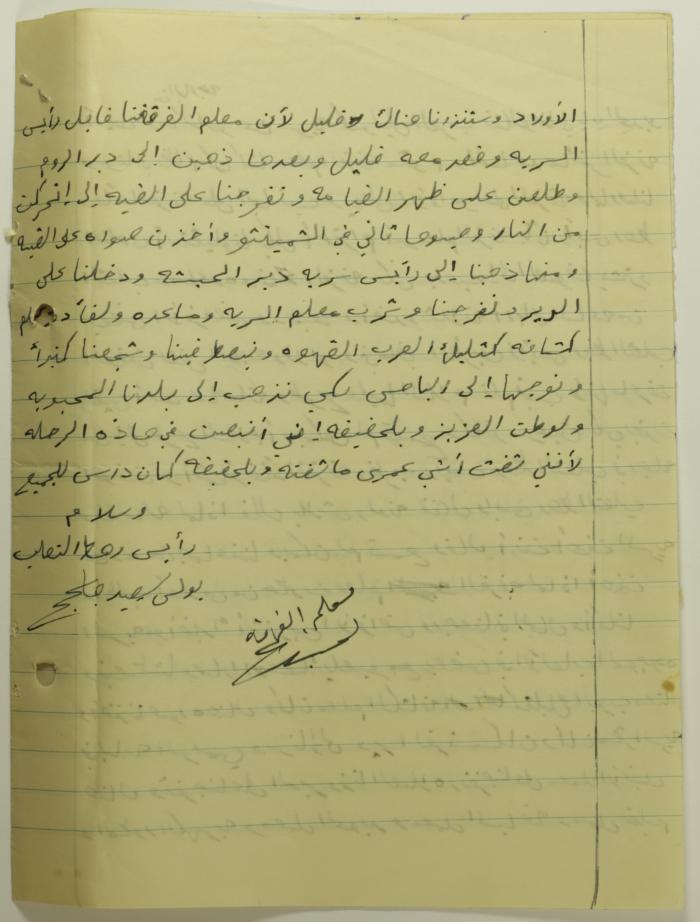 الأولاد وستنزرنا هناك قليل لأن معلم الفرقتنا قابل رأيس
السريه وقعد معه قليل وبعدها ذهبن إلى دير الروم
وطلعن على ظهر القيامه وتفرجنا على القبه إلى إنحركن
من النار وصبوها تاني في الشمينتو وأخذن صواه على القبه
ومنها ذهبنا إلى رأيس سريه دير الحبشه ودخلنا على
الدير وتفرجنا وشرب معلم السريه وساعده
كتانه كمتليك العرب القهوه ونبصط فينا وشجعنا كثيرأ
وتوجهنا إلى الباص لكي نذهب إلى بلدنا المحبوبه
ولوطن العزيز وبلحقيقه إنني أنبصت في هاذه الرحله
لأنني شفت أشي عمري ماشفته وبلحقيقه كمان دارس للجميع
وسلام
رأيس رهط التعلب
بولس سعيد
معلم الفرقة